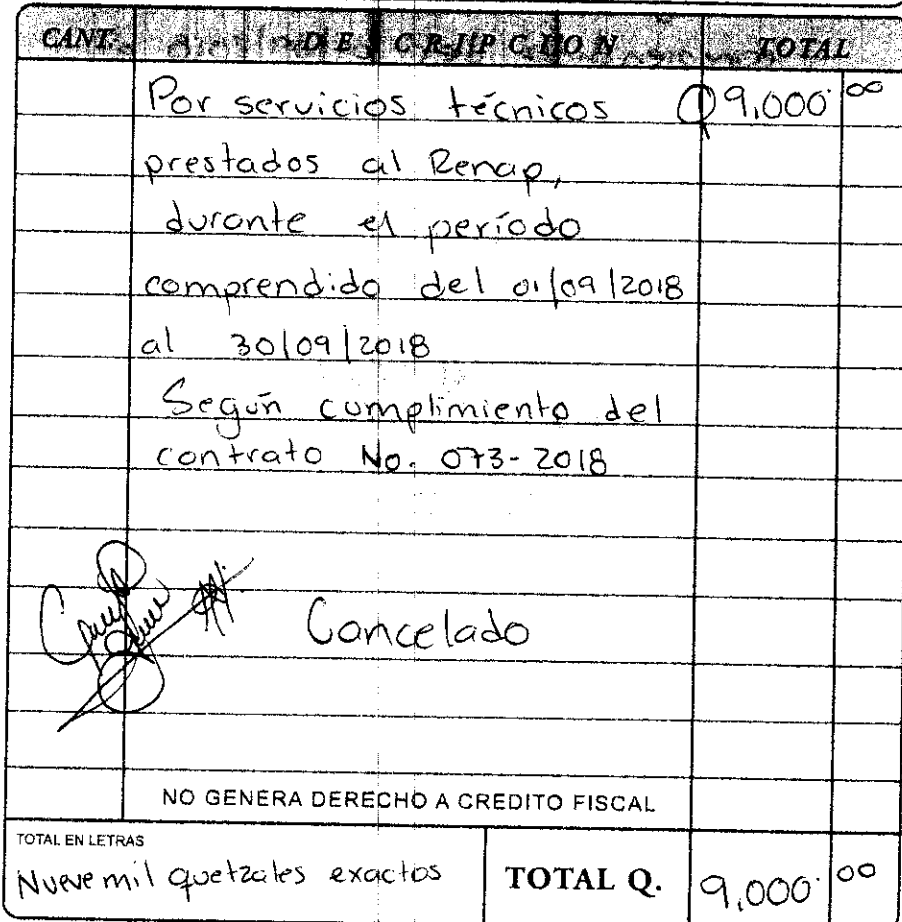 CANT. DESCRIPCION TOTAL
Por servicios técnicos Q9,000.00
prestados al Renap,
durante el período
comprendido del 01/09/2018
al 30/09/2018
Según cumplimiento del
contrato No. 073-2018
Cancelado
NO GENERA DERECHO A CREDITO FISCAL
TOTAL EN LETRAS
Nueve mil quetzales exactos TOTAL Q. 9,000.00